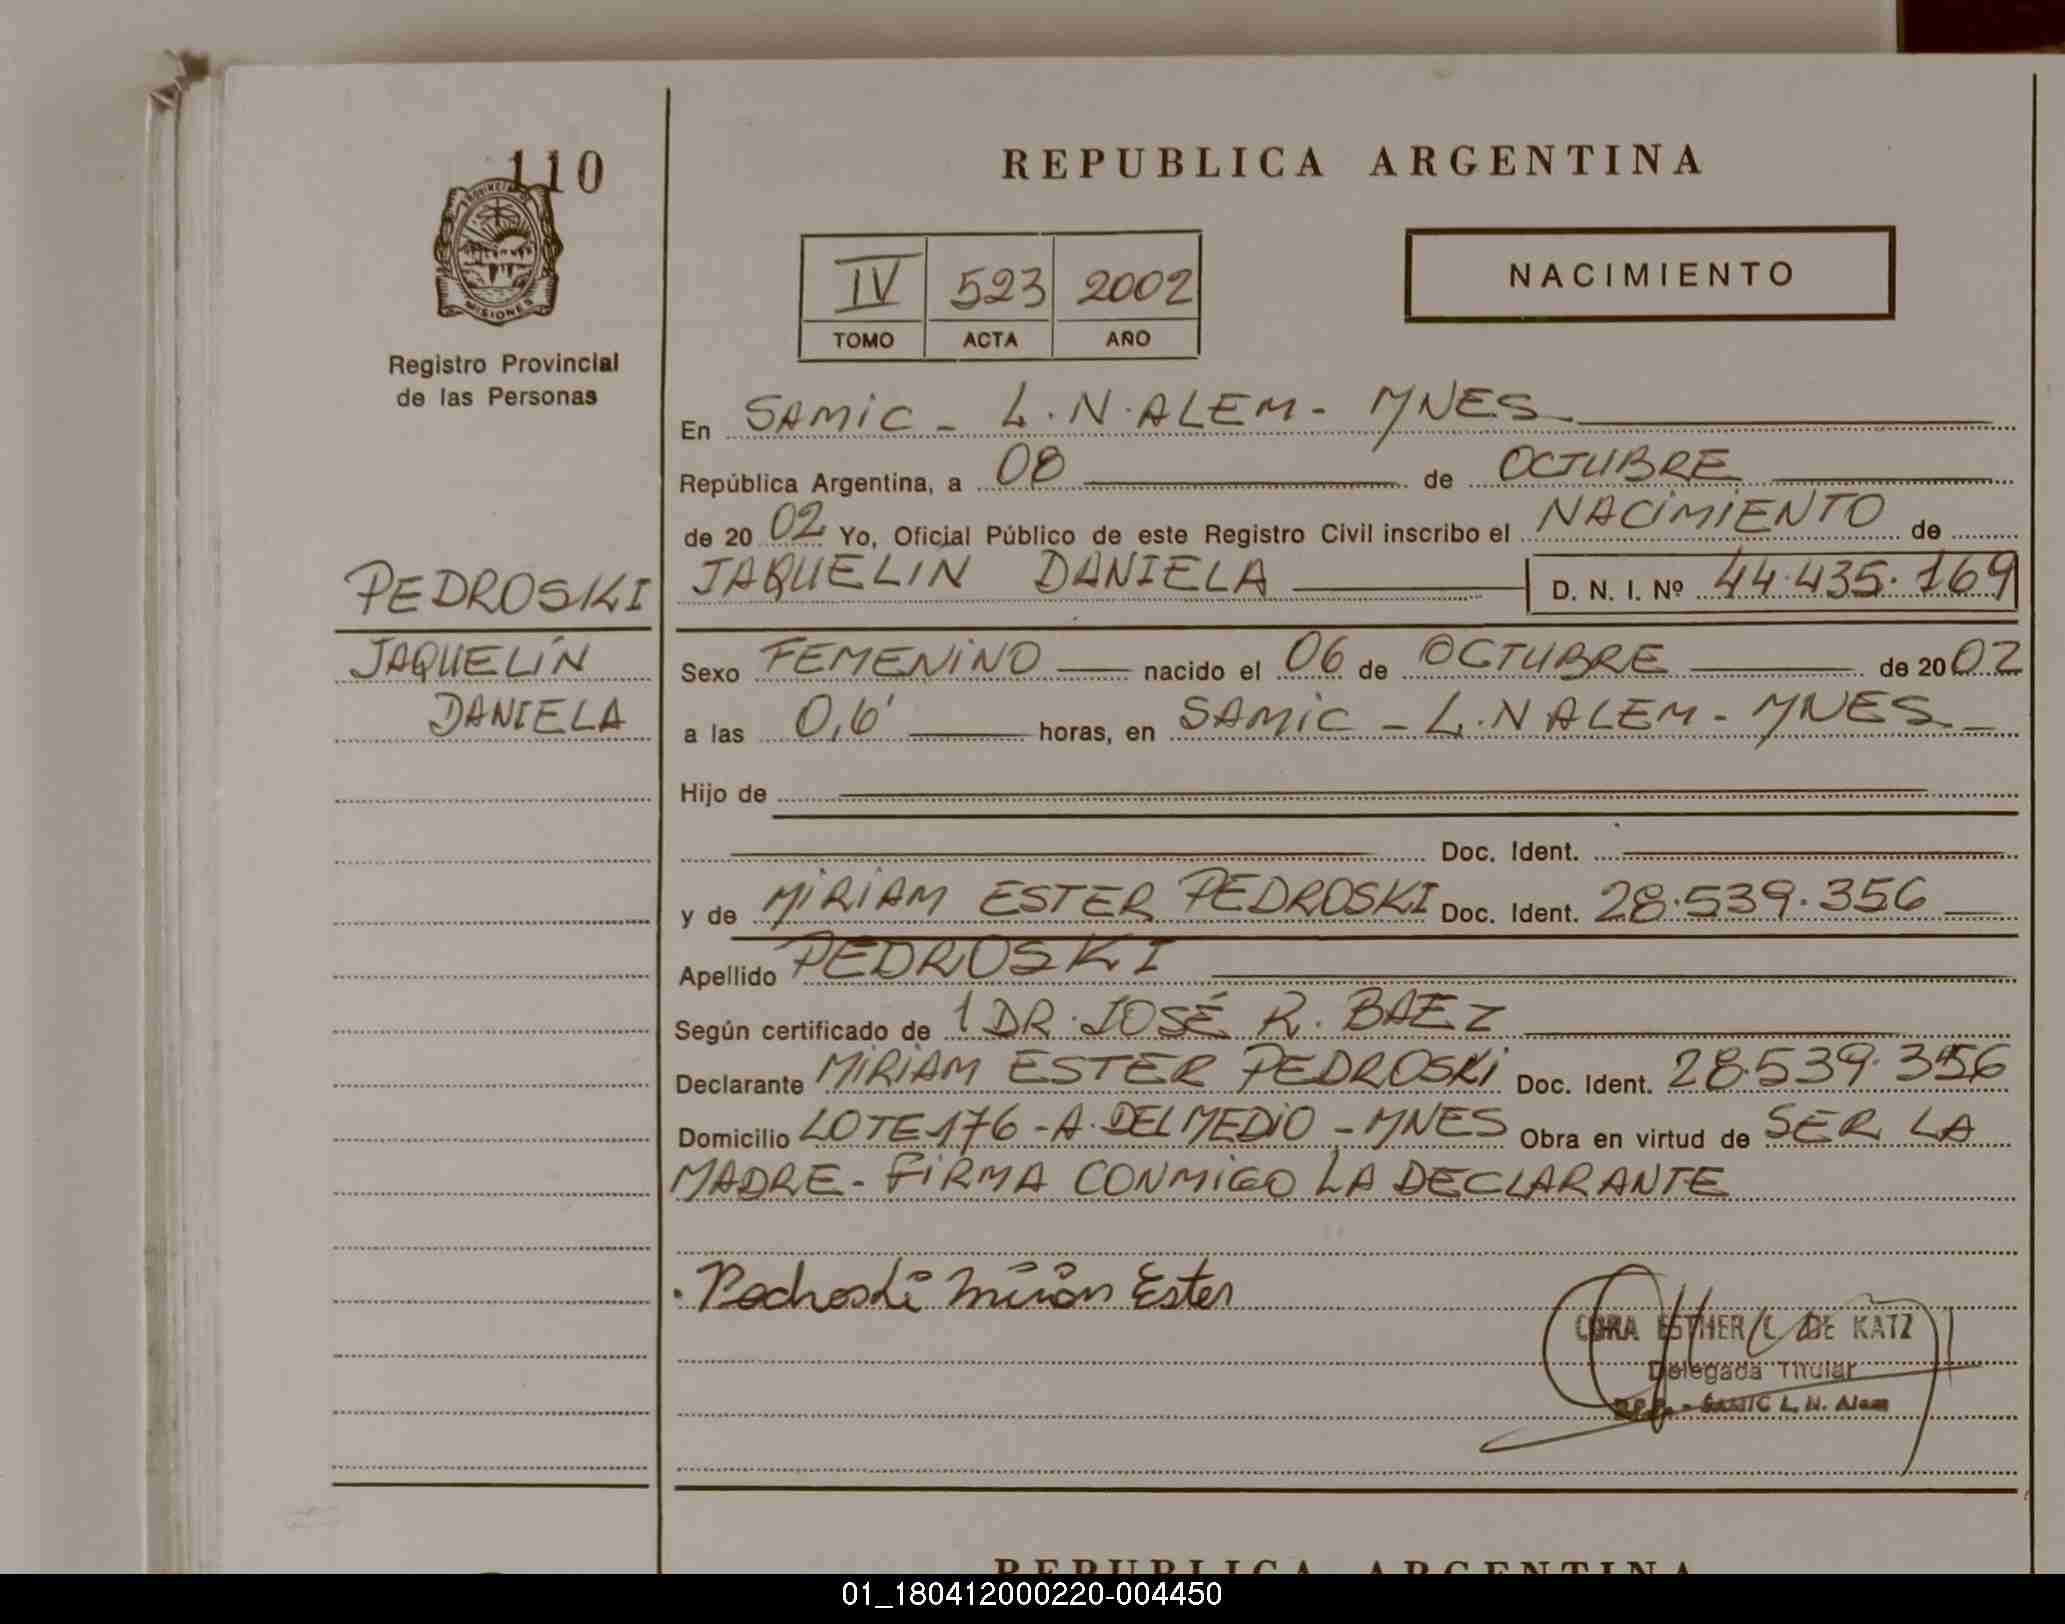 110
PROVINCIA DE
MISIONES
Registro Provincial
de las Personas
PEDROSKI
JAQUELÍN
DANIELA
REPUBLICA ARGENTINA
IV 523 2002
TOMO ACTA AÑO
NACIMIENTO
En SAMIC - L.N.ALEM - MNES
República Argentina, a 08 de OCTUBRE
de 20 02 Yo, Oficial Público de este Registro Civil inscribo el NACIMIENTO de
JAQUELÍN DANIELA D. N. I. Nº 44.435.169
Sexo FEMENINO nacido el 06 de OCTUBRE de 20 02
a las 0,6' horas, en SAMIC - L.N ALEM - MNES -
Hijo de
Doc. Ident.
y de MIRIAM ESTER PEDROSKI Doc. Ident. 28.539.356
Apellido PEDROSKI
Según certificado de 1 DR. JOSÉ R. BAEZ
Declarante MIRIAM ESTER PEDROSKI Doc. Ident. 28.539.356
Domicilio LOTE 176 - A. DEL MEDIO - MNES Obra en virtud de SER LA
MADRE - FIRMA CONMIGO LA DECLARANTE
Pedroski Miriam Ester
CORA ESTHER C. DE KATZ
Delegada Titular
R.P.P. - SAMIC L. N. Alem
REPUBLICA ARGENTINA
01_180412000220-004450